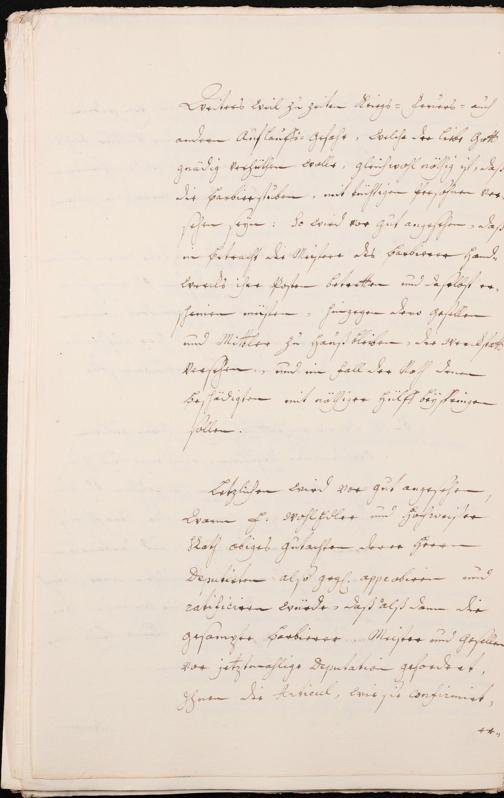 Weiters weil zu zeiten Kriegs- Feuers- auch
andern Auflauffs-Gefahr, welche der liebe Gott
gnädig verhüten wolle, gleichwohl nöthig ist, daß
die Barbierstuben, mit tüchtigen Persohnen ver-
sehen seyn: So wird vor gut angesehen, daß
in betracht die Meistere des Barbierer Hand-
wercks ihre Posten betretten und daselbst er-
scheinen müsten, hingegen dero Gesellen
und Mittler zu Hauß bleiben, die Werckstatt
versehen, und im fall der Noth denen
beschädigten mit nöthiger Hülff beyspringen
sollen.
Letzlichen wird vor gut angesehen,
wann E. WohlEdler und Hochweiser
Rath obiges Gutachten derer Herren
Deputirten also approbiren und
ratificiren würde, daß alß dann die
gesampte Barbierer Meister und Gesellen
vor jetztmahlige Deputation gefordert,
Ihnen die Articul, wie sie confirmirt,